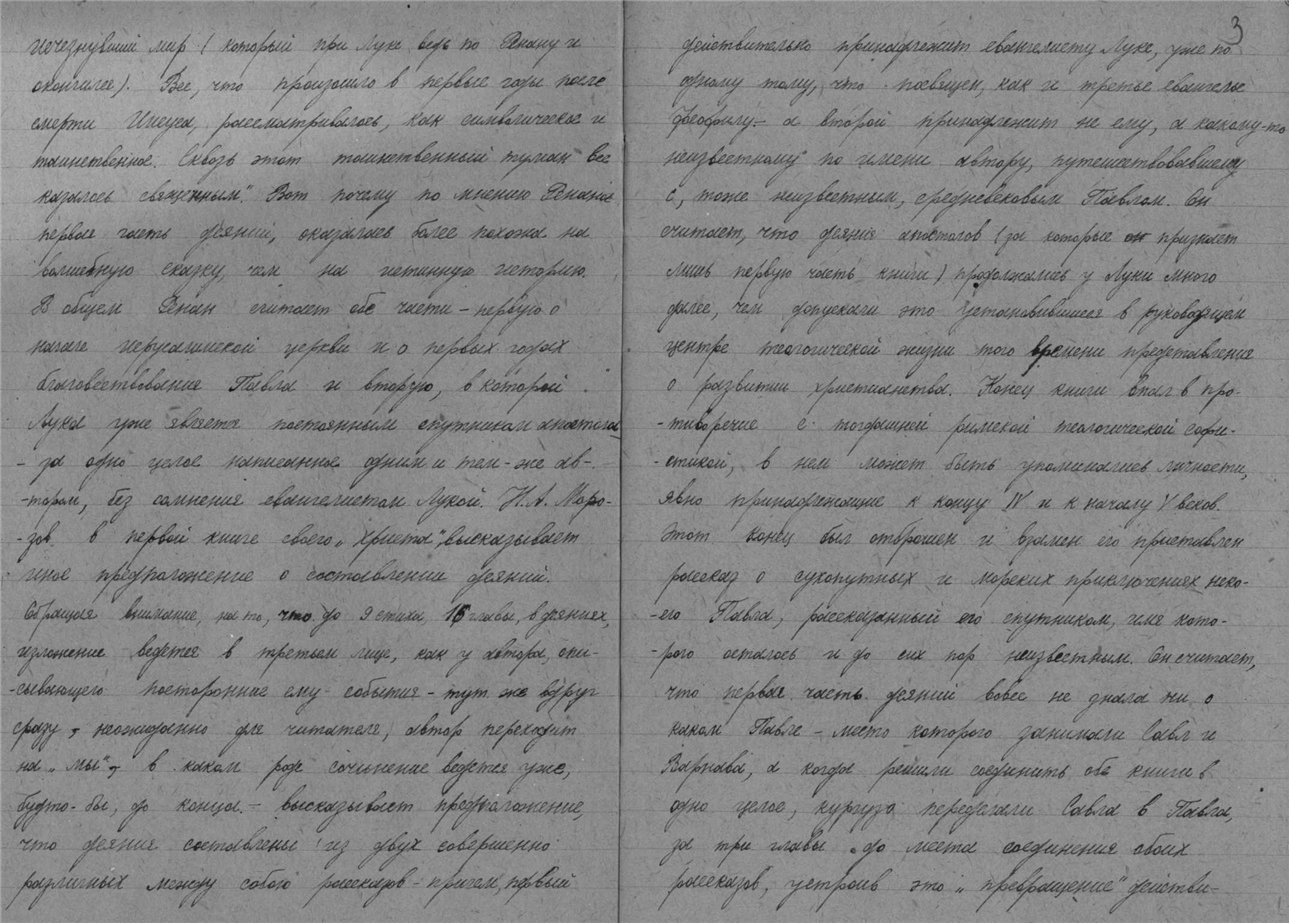 исчезнувший мир (который при Луке ведь по Ренану и
окончился). Все, что произошло в первые годы после
смерти Иисуса, рассматривалось, как символическое и
таинственное. Сквозь этот таинственный туман все
казалось священным". Вот почему по мнению Ренана
первая часть деяний, оказалась более похожа на
волшебную сказку, чем на истинную историю.
В общем Ренан считает обе части – первую о
начале иерусалимской церкви и о первых годах
благовествования Павла и вторую, в которой
Лука уже является постоянным спутником апостола
- за одно целое написанное одним и тем-же ав-
-тором, без сомнения евангелистом Лукой. Н.А. Моро-
-зов в первой книге своего „Христа" высказывает
иное предположение о составлении деяний.
Обращая внимание, на то, что до 9 стиха, 16 главы, в деяниях,
изложение ведется в третьем лице, как у автора, опи-
-сывающего посторонние ему события – тут же вдруг
сразу, неожиданно для читателя, автор переходит
на „мы", в каком роде сочинение ведется уже,
будто-бы, до конца – высказывает предположение,
что деяния составлены из двух совершенно
различных между собою рассказов – причем, первый
3
действительно принадлежит евангелисту Луке, уже по
одному тому, что посвящен, как и третье евангелье
Феофилу – а второй принадлежит не ему, а какому-то
неизвестному по имени автору, путешествовавшему
с, тоже неизвестным, средневековым Павлом. Он
считает, что деяния апостолов (за которые он признает
лишь первую часть книги) продолжались у Луки много
далее, чем допускали это установившееся в руководящем
центре теологической жизни того времени представление
о развитии христианства. Конец книги впал в про-
-тиворечие с тогдашней римской теологической софи-
-стикой, в нем может быть упоминались личности,
явно принадлежащие к концу IV и к началу V веков.
Этот конец был отброшен и взамен его приставлен
рассказ о сухопутных и морских приключениях неко-
-его Павла, рассказанный его спутником, имя кото-
-рого осталось и до сих пор неизвестным. Он считает,
что первая часть деяний вовсе не знала ни о
каком Павле – место которого занимали Савл и
Варнава, а когда решили соединить обе книги в
одно целое, кургузо переделали Савла в Павла,
за три главы до места соединения обоих
рассказов, устроив это „превращение" действи-